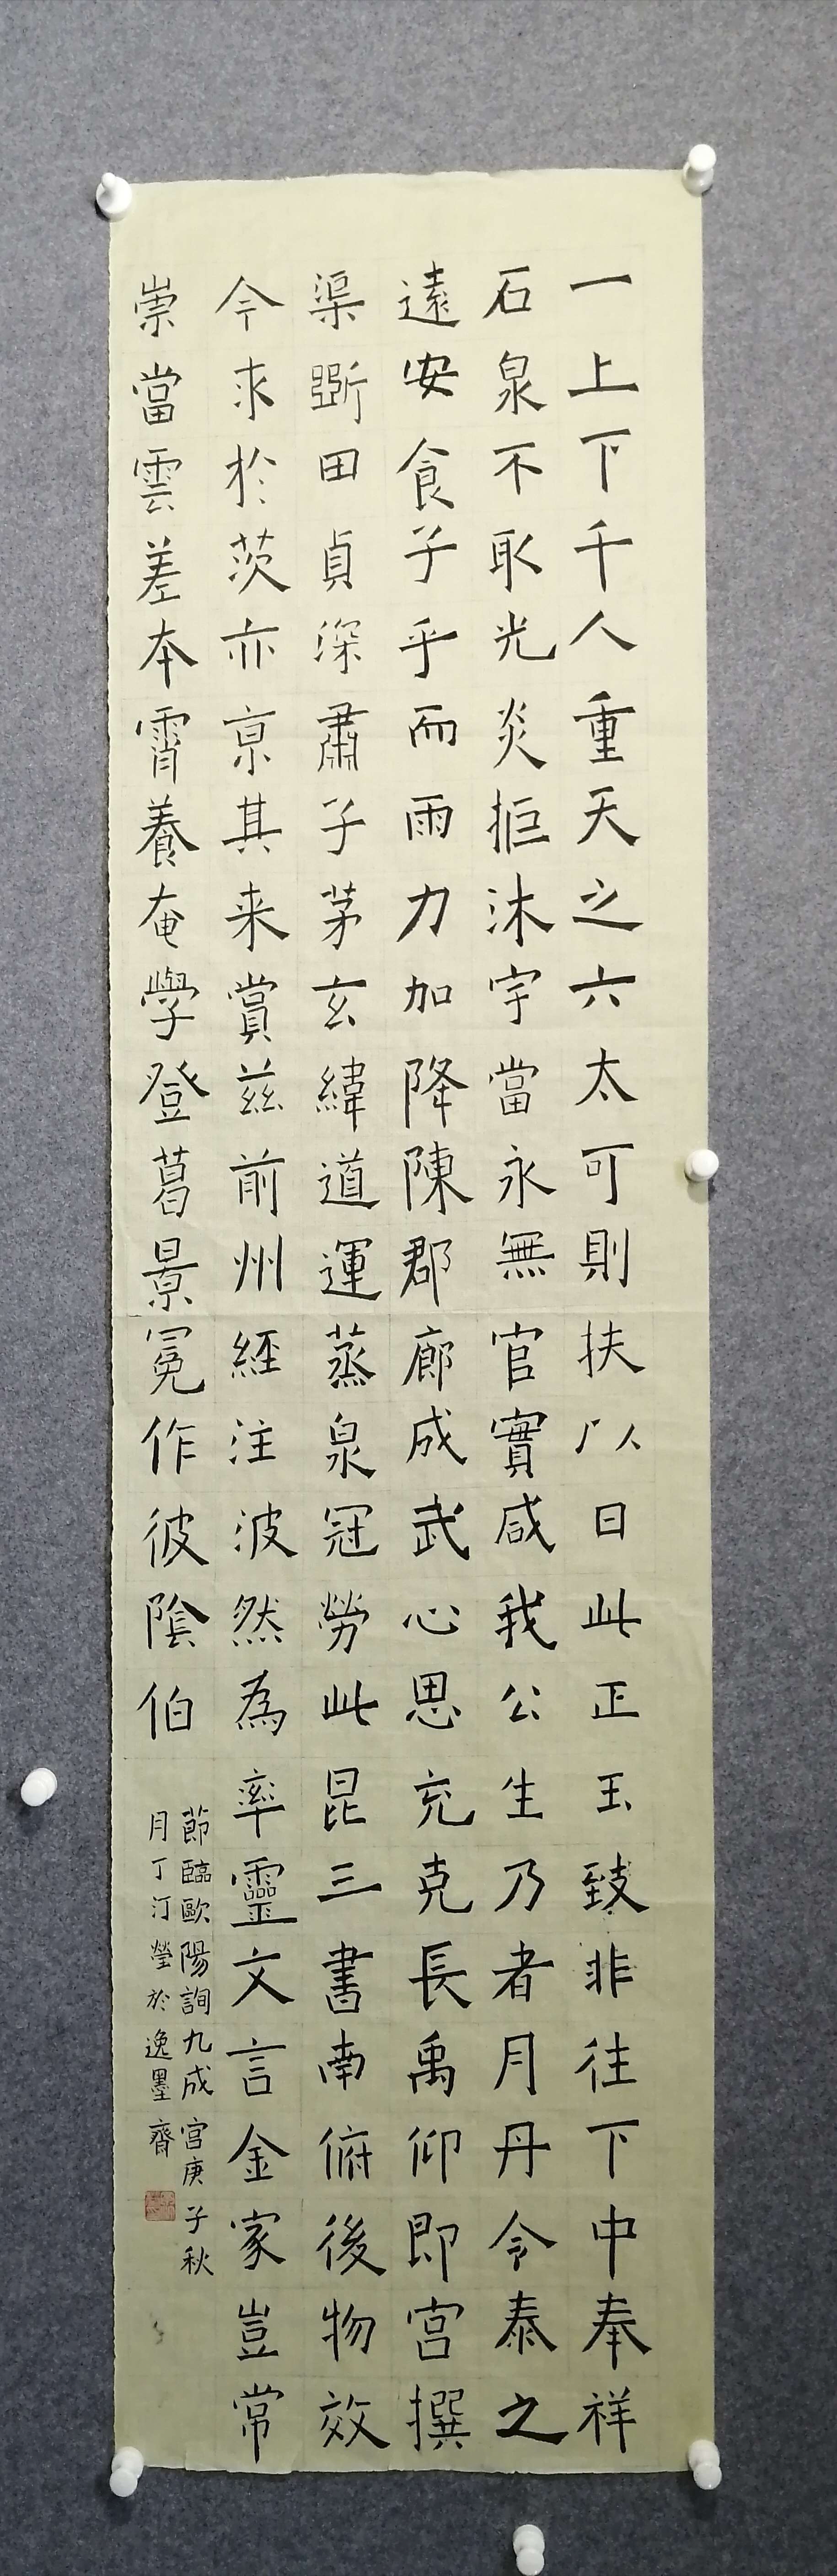 一上下千人重天之六太可則扶以日此正玉致非往下中奉祥
石泉不取光炎拒沐宇當永無官實咸我公生乃者月丹令泰之
遠安食子乎而雨力加降陳郡廊成武心思充克長禹仰即宫撰
渠斷田貞深肅子茅玄緯道運蒸泉冠勞此昆三書南俯後物效
今求於茨亦京其来賞兹前州經注波然為率靈文言金家豈常
崇當雲差本霄養奄學登葛景冕作彼陰伯
節臨歐陽詢九成宫庚子秋
月丁汀瑩於逸墨齋